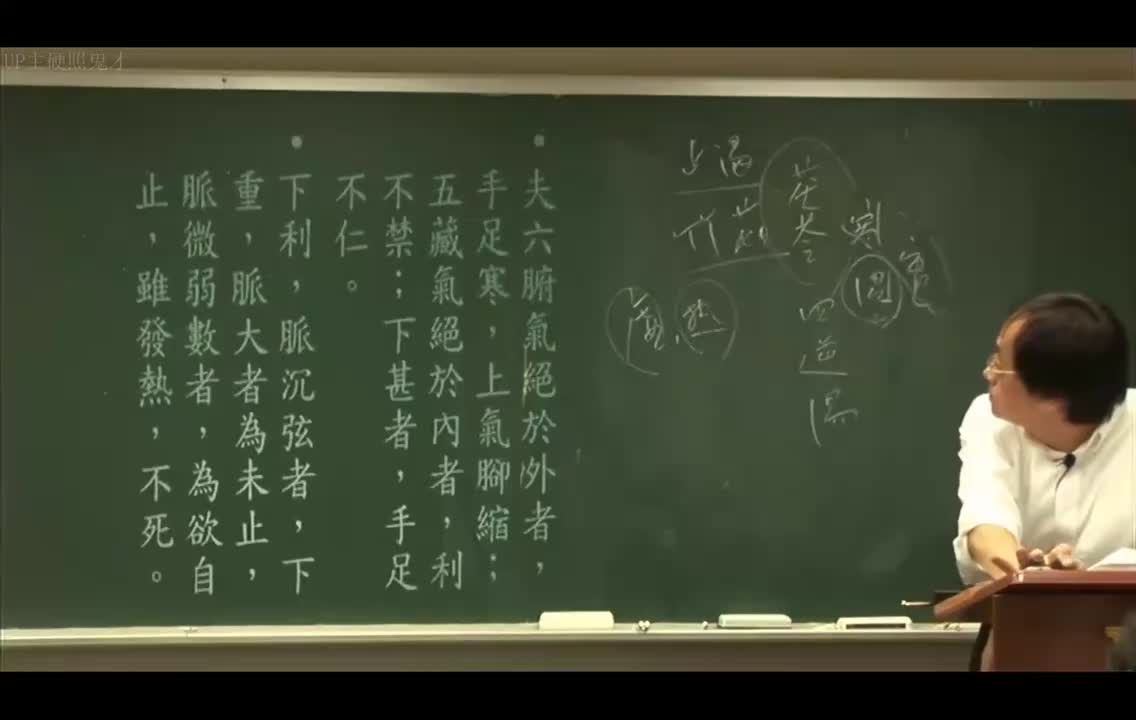 UP主硬照鬼才
夫六腑氣絕於外者，
手足寒，上氣腳縮；
五藏氣絕於內者，利
不禁；下甚者，手足
不仁。
下利，脈沉弦者，下
重，脈大者為未止，
脈微弱數者，為欲自
止，雖發熱，不死。
茯苓
四逆湯